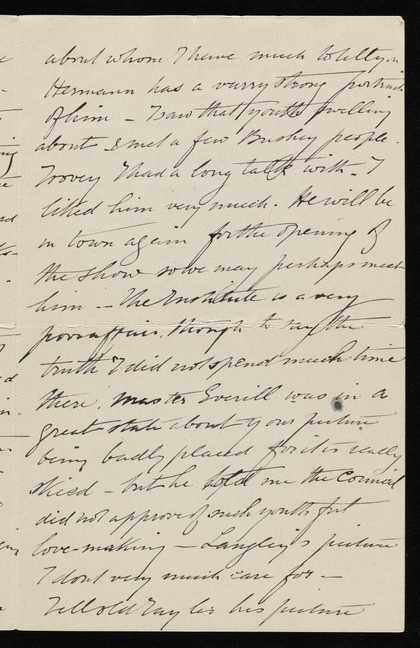 about whom I have much to tell you
Hermann has a varry strong portrait
of him – I saw that youth swelling
about & met a few Bushey people.
Toovey I had a long talk with – I
liked him very much. He will be
in town again for the opening of
the show so we may perhaps meet
him – The Institute is a very
poor affair, though to say the
truth I did not spend much time
there. Master Everill was in a
great state about your picture
being badly placed for it is really
skied – but he told me the Council
did not approve of such youthful
love-making – Langley's picture
I dont very much care for –
Tell old Tayler his picture